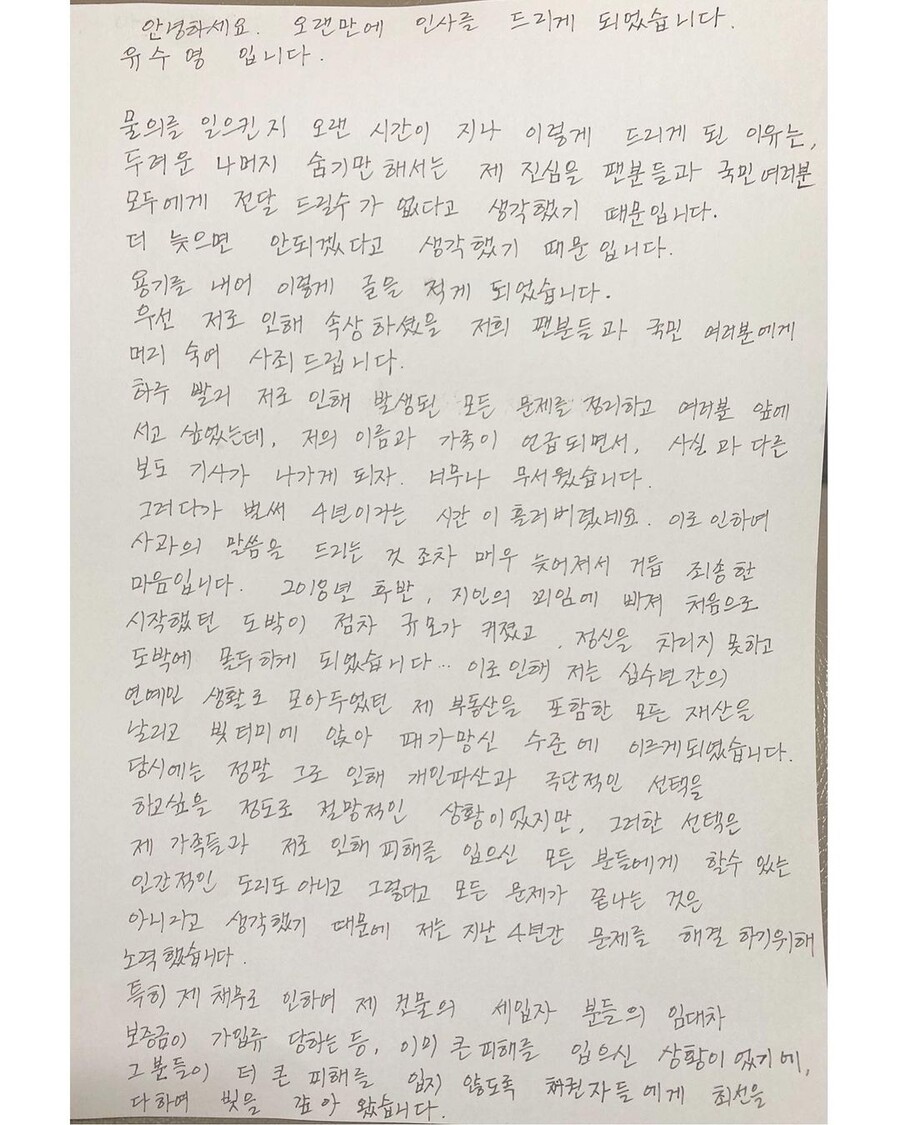 안녕하세요. 오랜만에 인사를 드리게 되었습니다.
유수영 입니다.
물의를 일으킨지 오랜 시간이 지나 이렇게 드리게 된 이유는,
두려운 나머지 숨기만 해서는 제 진심을 팬분들과 국민여러분
모두에게 전달 드릴수가 없다고 생각했기 때문입니다.
더 늦으면 안되겠다고 생각했기 때문입니다.
용기를 내어 이렇게 글을 적게 되었습니다.
우선 저로 인해 속상하셨을 저희 팬분들과 국민 여러분에게
머리 숙여 사죄드립니다.
하루 빨리 저로 인해 발생된 모든 문제를 정리하고 여러분 앞에
서고 싶었는데, 저의 이름과 가족이 언급되면서, 사실과 다른
보도 기사가 나가게 되자. 너무나 무서웠습니다.
그러다가 벌써 4년이라는 시간이 흘러버렸네요. 이로 인하여
사과의 말씀을 드리는 것 조차 매우 늦어져서 거듭 죄송한
마음입니다. 2018년 후반, 지인의 꾀임에 빠져 처음으로
시작했던 도박이 점차 규모가 커졌고, 정신을 차리지 못하고
도박에 몰두하게 되었습니다... 이로 인해 저는 십수년간의
연예인 생활로 모아두었던 제 부동산을 포함한 모든 재산을
날리고 빚더미에 앉아 패가망신 수준에 이르게되었습니다.
당시에는 정말 그로 인해 개인파산과 극단적인 선택을
하고싶을 정도로 절망적인 상황이었지만, 그러한 선택은
제 가족들과 저로 인해 피해를 입으신 모든 분들에게 할수 있는
인간적인 도리도 아니고 그렇다고 모든 문제가 끝나는 것은
아니라고 생각했기 때문에 저는 지난 4년간 문제를 해결 하기위해
노력했습니다.
특히 제 채무로 인하여 제 건물의 세입자 분들의 임대차
보증금이 가압류 당하는 등, 이미 큰 피해를 입으신 상황이었기에,
그분들이 더 큰 피해를 입지 않도록 채권자들에게 최선을
다하여 빚을 갚아 왔습니다.